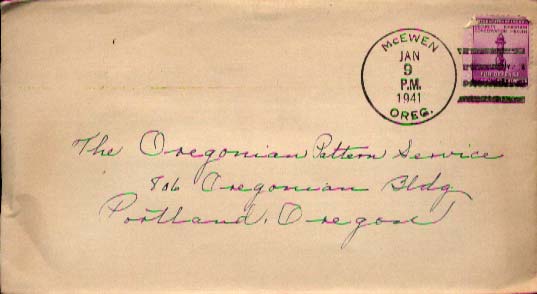 McEWEN
JAN
9
P.M.
1941
OREG.
FOR DEFENSE
The Oregonian Pattern Service
806 Oregonian Bldg
Portland, Oregon